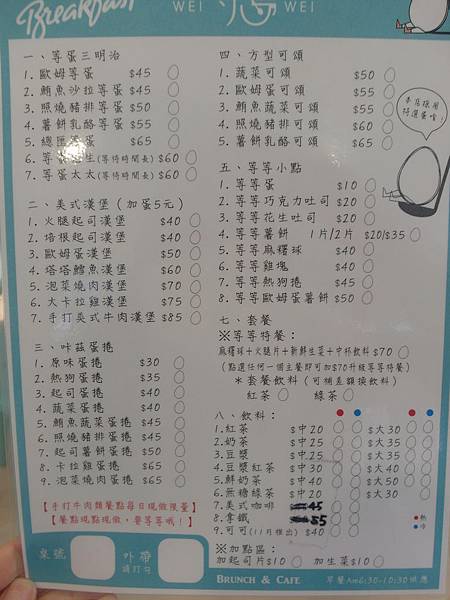 Breakfast
WEI WEI
一、等蛋三明治
1. 歐姆等蛋 $45
2. 鮪魚沙拉等蛋 $45
3. 照燒豬排等蛋 $50
4. 薯餅乳酪等蛋 $55
5. 總匯等蛋 $65
6. 等蛋先生(等待時間長) $60
7. 等蛋太太(等待時間長) $60
二、美式漢堡 (加蛋5元)
1. 火腿起司漢堡 $40
2. 培根起司漢堡 $40
3. 歐姆蛋漢堡 $50
4. 塔塔鱈魚漢堡 $60
5. 泡菜燒肉漢堡 $70
6. 大卡拉雞漢堡 $75
7. 手打美式牛肉漢堡 $85
三、咔茲蛋捲
1. 原味蛋捲 $30
2. 熱狗蛋捲 $35
3. 起司蛋捲 $40
4. 蔬菜蛋捲 $40
5. 鮪魚蔬菜蛋捲 $45
6. 照燒豬排蛋捲 $50
7. 起司薯餅蛋捲 $50
8. 卡拉雞蛋捲 $65
9. 泡菜燒肉蛋捲 $65
【手打牛肉類餐點每日現做限量】
【餐點現點現做，要等等哦！】
桌號
外帶
請打勾
四、方型可頌
1. 蔬菜可頌 $50
2. 歐姆蛋可頌 $55
3. 鮪魚蔬菜可頌 $55
4. 照燒豬排可頌 $60
5. 總匯可頌 $65
本店採用
特選蛋唷！
五、等等小點
1. 等等蛋 $10
2. 等等巧克力吐司 $20
3. 等等花生吐司 $20
4. 等等薯餅 1片/2片 $20/$35
5. 等等麻糬球 $40
6. 等等雞塊 $40
7. 等等熱狗捲 $45
8. 等等歐姆蛋薯餅 $50
七、套餐
※等等特餐：
麻糬球+火腿片+新鮮生菜+中杯飲料 $70
(點選任何一個主餐即可加$70升級等等特餐)
＊套餐飲料(可補差額換飲料)
紅茶 綠茶
八、飲料：
1.紅茶 $中20 $大30
2.奶茶 $中25 $大35
3.豆漿 $中25 $大35
4.豆漿紅茶 $中30 $大40
5.鮮奶茶 $中40 $大50
6.無糖綠茶 $中20 $大30
7.美式咖啡 $45
8.拿鐵
9.可可(11月推出) $40
熱
冷
※加點區：
加起司片$10 加生菜$10
BRUNCH & CAFE 早餐Am6:30-10:30供應